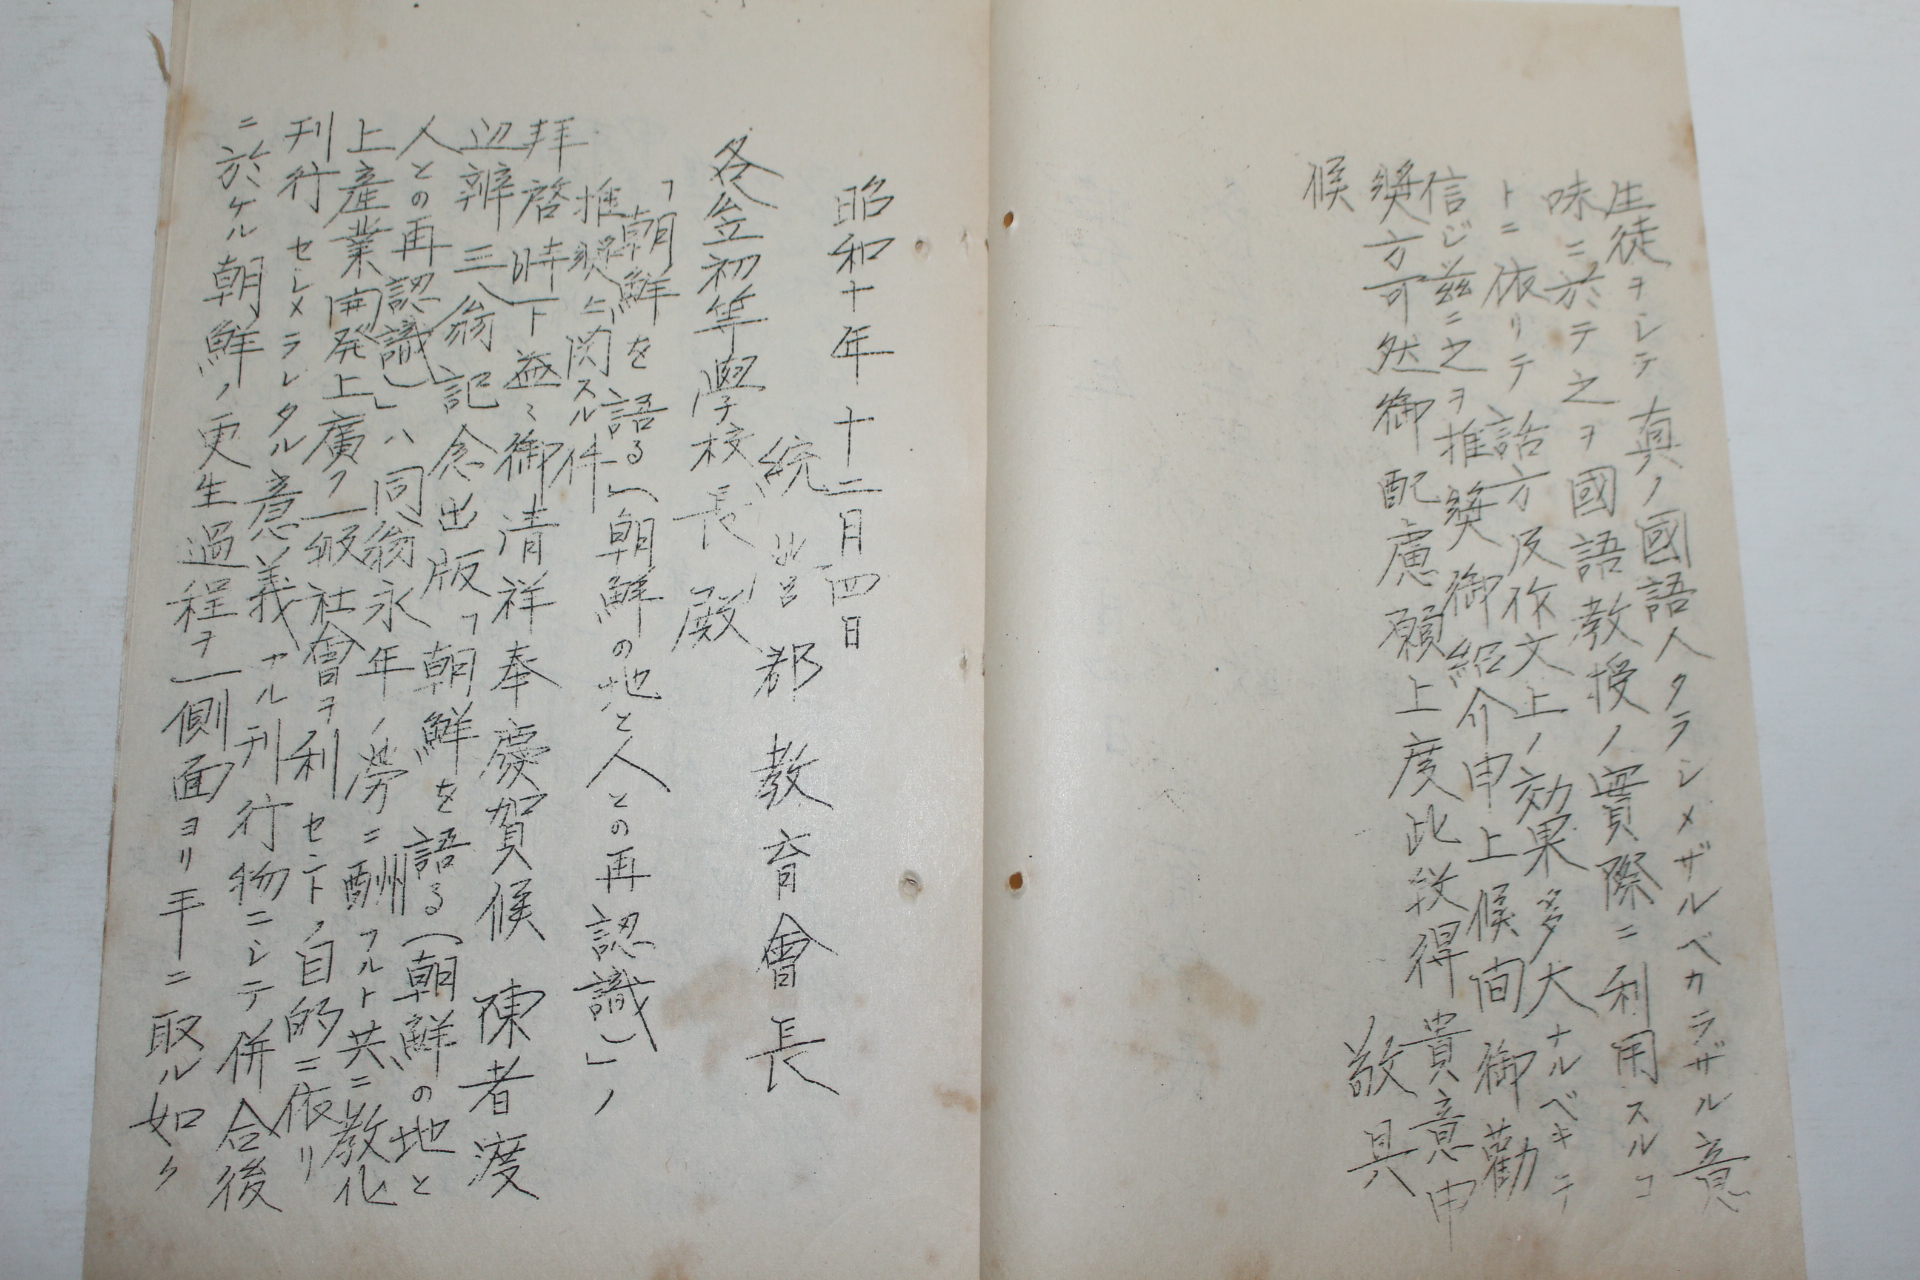 生徒ヲシテ真ノ國語人タラシメザルベカラザル意
味ニ於テ之ヲ國語教授ノ實際ニ利用スルコ
トニ依リテ話方及作文上ノ効果多大ナルベキテ
信ジ茲ニ之ヲ推奨御紹介申上候間御勸
奨方可然御配慮願上度此段得貴意申
候 敬具
昭和十年十二月四日
統営郡教育會長
各公立初等學校長殿
「朝鮮を語る(朝鮮の地と人との再認識)」ノ
推奨ニ関スル件
拝啓時下益々御清祥奉慶賀候陳者渡
辺辨三翁記念出版「朝鮮を語る(朝鮮の地と
人との再認識)」ハ同翁永年ノ労ニ酬フルト共ニ教化
上産業開発上廣ク一般社會ヲ利セントノ目的ニ依リ
刊行セシメラレタル意義ナル刊行物ニシテ併合後
ニ於ケル朝鮮ノ更生過程ヲ一側面ヨリ手ニ取ル如ク